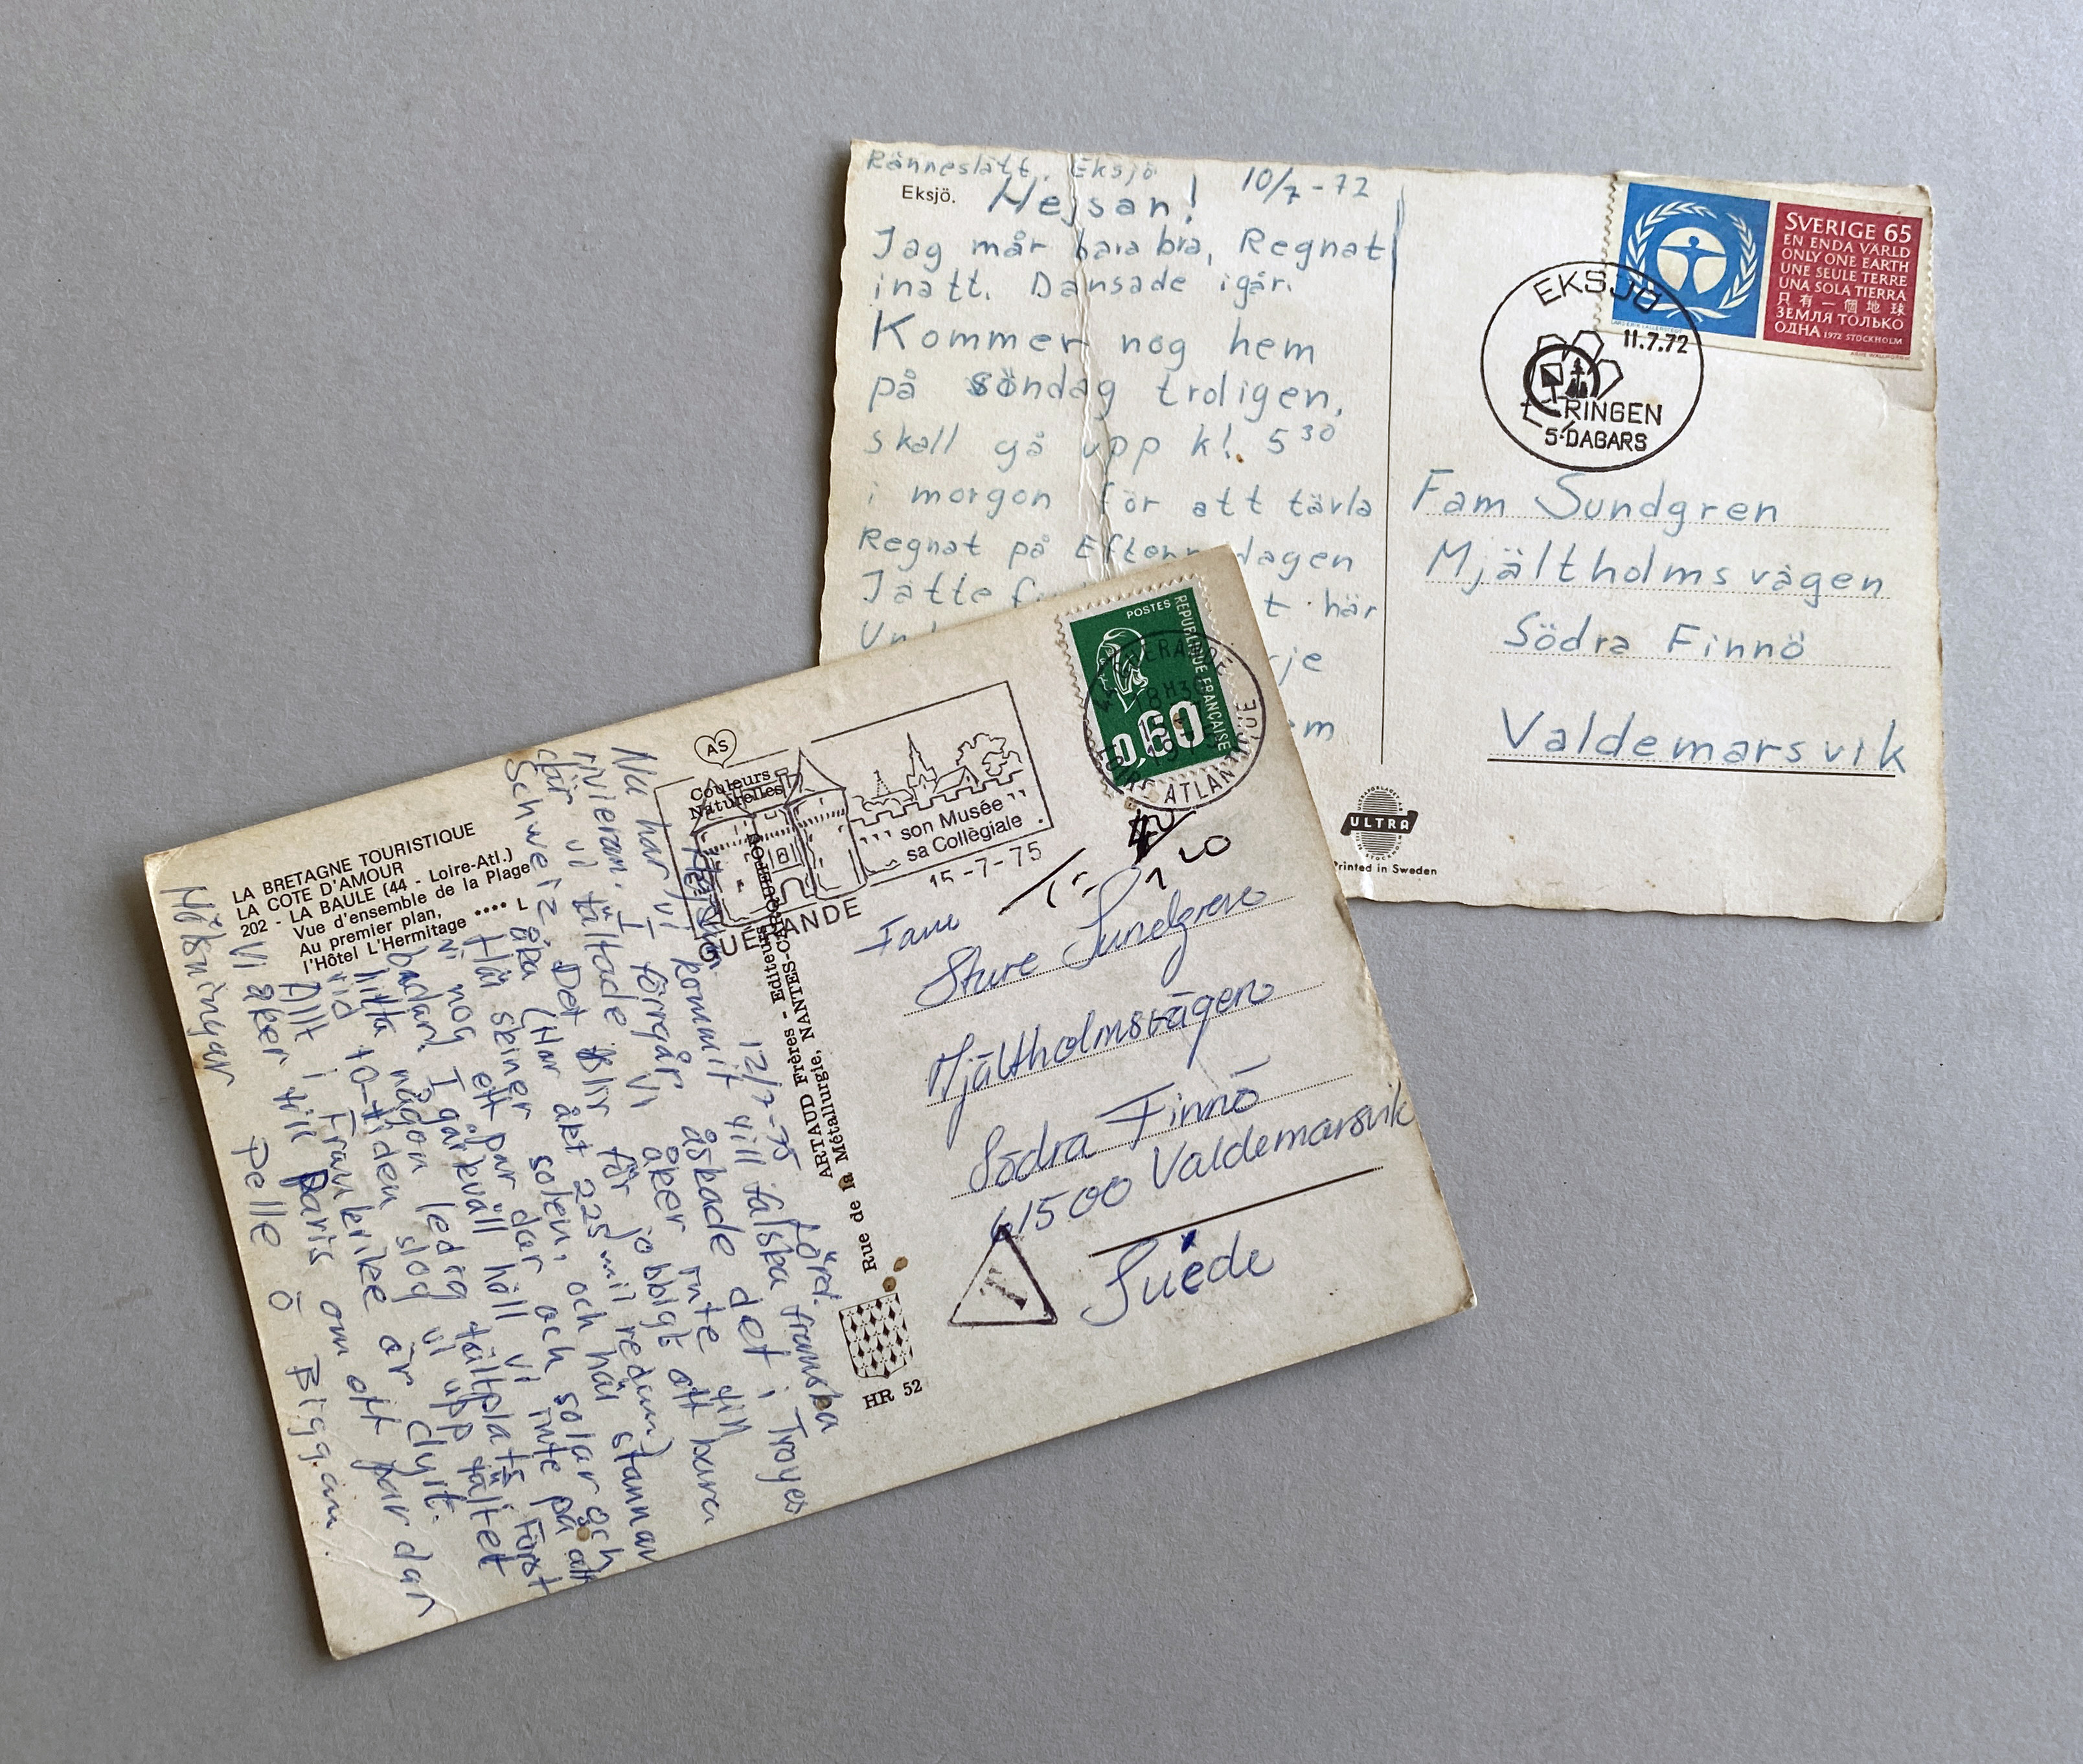 Ränneslätt, Eksjö
10/7-72
Eksjö.
Hejsan!
Jag mår bara bra, Regnat
inatt. Dansade igår.
Kommer nog hem
på söndag troligen,
skall gå upp kl. 5 30
i morgon för att tävla
Regnat på Efter dagen
Jätte t här
rje
em
SVERIGE 65
EN ENDA VÄRLD
ONLY ONE EARTH
UNE SEULE TERRE
UNA SOLA TIERRA
只有一個地球
ЗЕМЛЯ ТОЛЬКО
ОДНА 1972 STOCKHOLM
EKSJÖ
11.7.72
RINGEN
5-DAGARS
Fam Sundgren
Mjältholmsvägen
Södra Finnö
Valdemarsvik
ULTRA
Printed in Sweden
LA BRETAGNE TOURISTIQUE
LA COTE D'AMOUR
202 - LA BAULE (44 - Loire-Atl.)
Vue d'ensemble de la Plage
Au premier plan,
l'Hôtel L'Hermitage **** L
AS
Couleurs
Naturelles
son Musée
sa Collègiale
GUERANDE
15-7-75
POSTES
REPUBLIQUE FRANÇAISE
0,60
LOIRE ATLANTIQUE
ARTAUD Frères - Editeurs
Rue de la Métallurgie, NANTES
HR 52
12/7-75 Lörd.
Hejsan
Nu har vi kommit till falska franska
rivieran. I förrgår åskade det i Troyes
där vi tältade Vi åker inte till
Schweiz. Det blir för jobbigt att bara
åka (Har åkt 225 mil redan)
Här skiner solen, och här stannar
vi nog ett par dar och solar och
badar. I går kväll höll vi inte på att
hitta någon ledig tältplats Först
vid 10-tiden slog vi upp tältet
Allt i Frankrike är dyrt.
Vi åker till Paris om ett par dar
Hälsningar Pelle o Biggan.
Fam
Sture Sundgren
Mjältholmsvägen
Södra Finnö
61500 Valdemarsvik
Suède
T